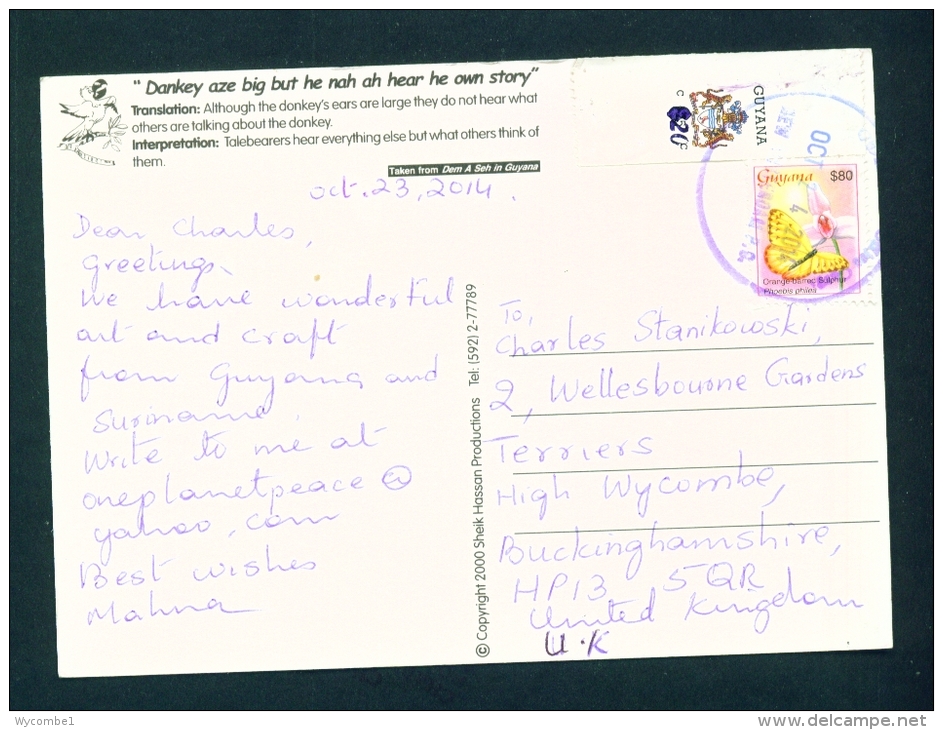 " Dankey aze big but he nah ah hear he own story"
Translation: Although the donkey's ears are large they do not hear what
others are talking about the donkey.
Interpretation: Talebearers hear everything else but what others think of
them.
Taken from Dem A Seh in Guyana
oct.23, 2014.
Dear Charles,
Greetings
We have wonderful
art and craft
from Guyana and
Suriname.
Write to me at
oneplanetpeace @
yahoo.com
Best wishes
Mahna
© Copyright 2000 Sheik Hassan Productions Tel: (592) 2-77789
GUYANA
OCT
4 2014
Guyana $80
Orange-barred Sulphur
Phoebis philea
To,
Charles Stanikowski,
2, Wellesbourne Gardens
Terriers
High Wycombe,
Buckinghamshire,
HP13 5QR
United Kingdom
U.K
Wycombe1
www.delcampe.net